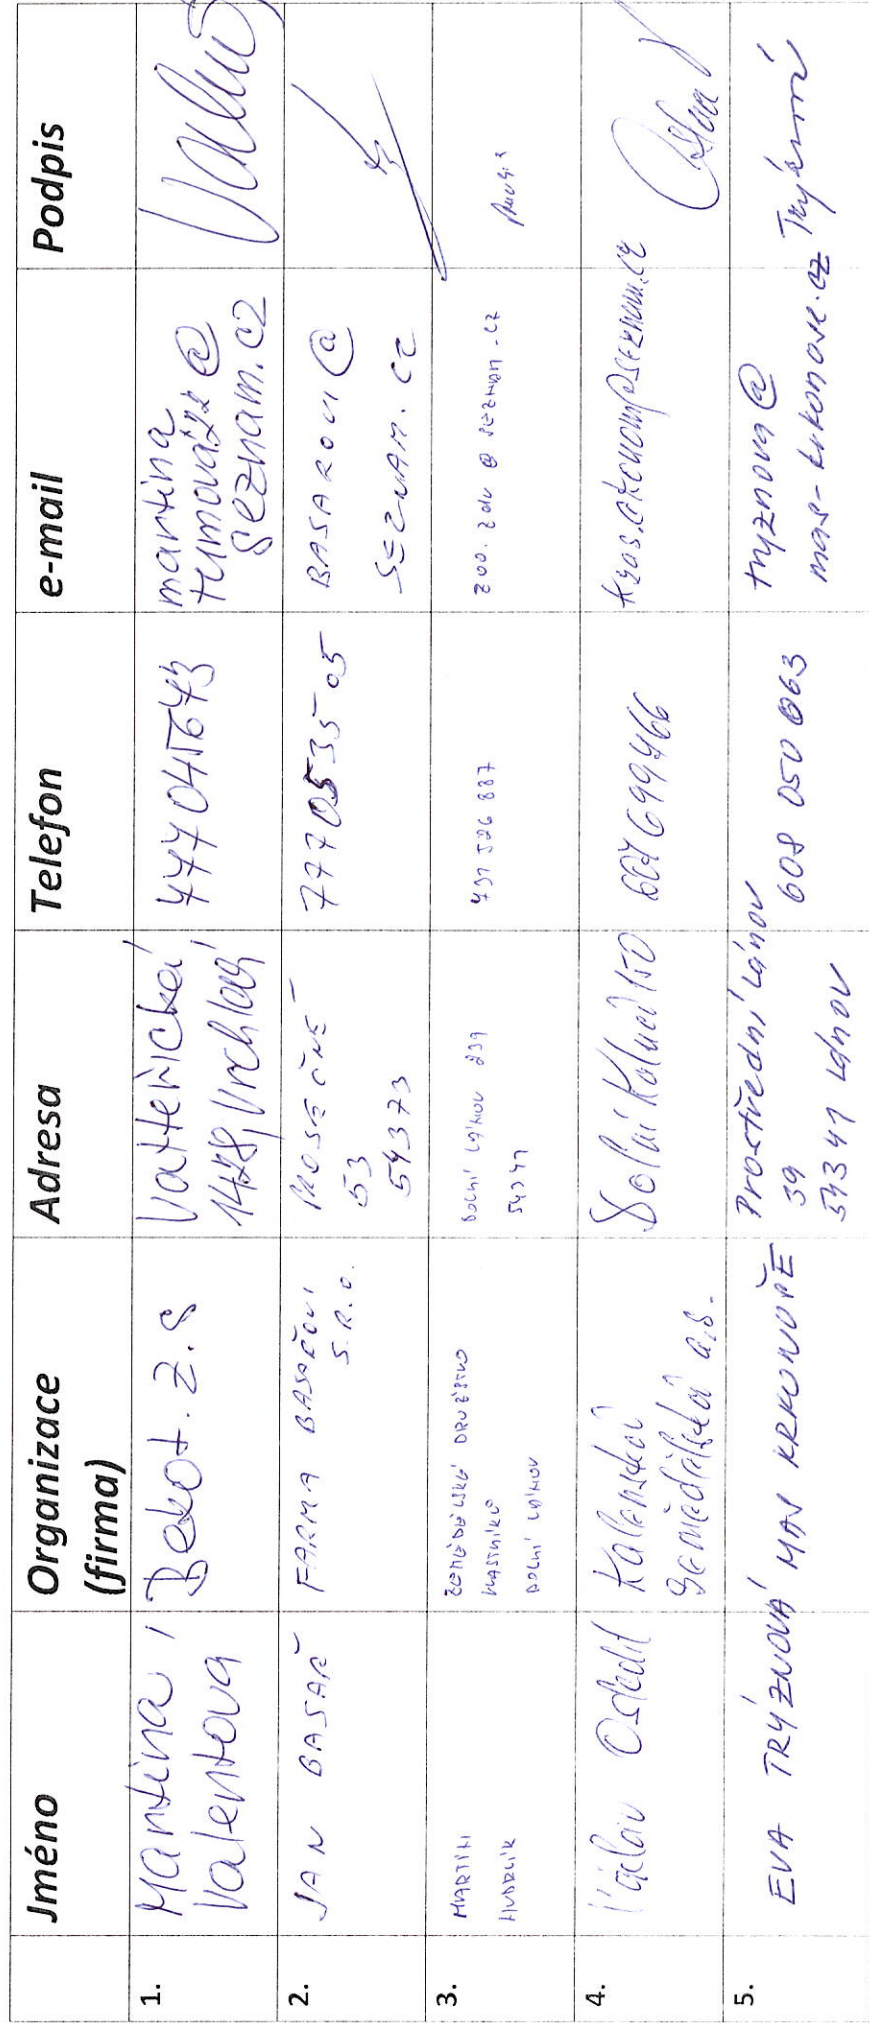 Jméno Organizace (firma) Adresa Telefon e-mail Podpis
1. Martina Valentová
Bekot. z.s
Vrchlabí
777045673
martina
seznam.cz
2. JAN BASAŘ
FARMA BASAŘOVI
S.R.O.
PROSEČNÉ
53
54373
777053505
BASAROVI@
SEZNAM.CZ
3. MARTIN
ZEMĚDĚLSKÉ DRUŽSTVO
VLASTNÍKŮ
DOLNÍ LÁNOV
DOLNÍ LÁNOV 239
54341
731 526 887
zdv@seznam.cz
4. Václav
Kalenská
zemědělská a.s.
Dolní Kalná 150
5. EVA TRÝZNOVÁ
MAS KRKONOŠE
Prostřední Lánov
39
54341 Lánov
608 050 063
tryznova@
mas-krkonose.cz
Trýznová